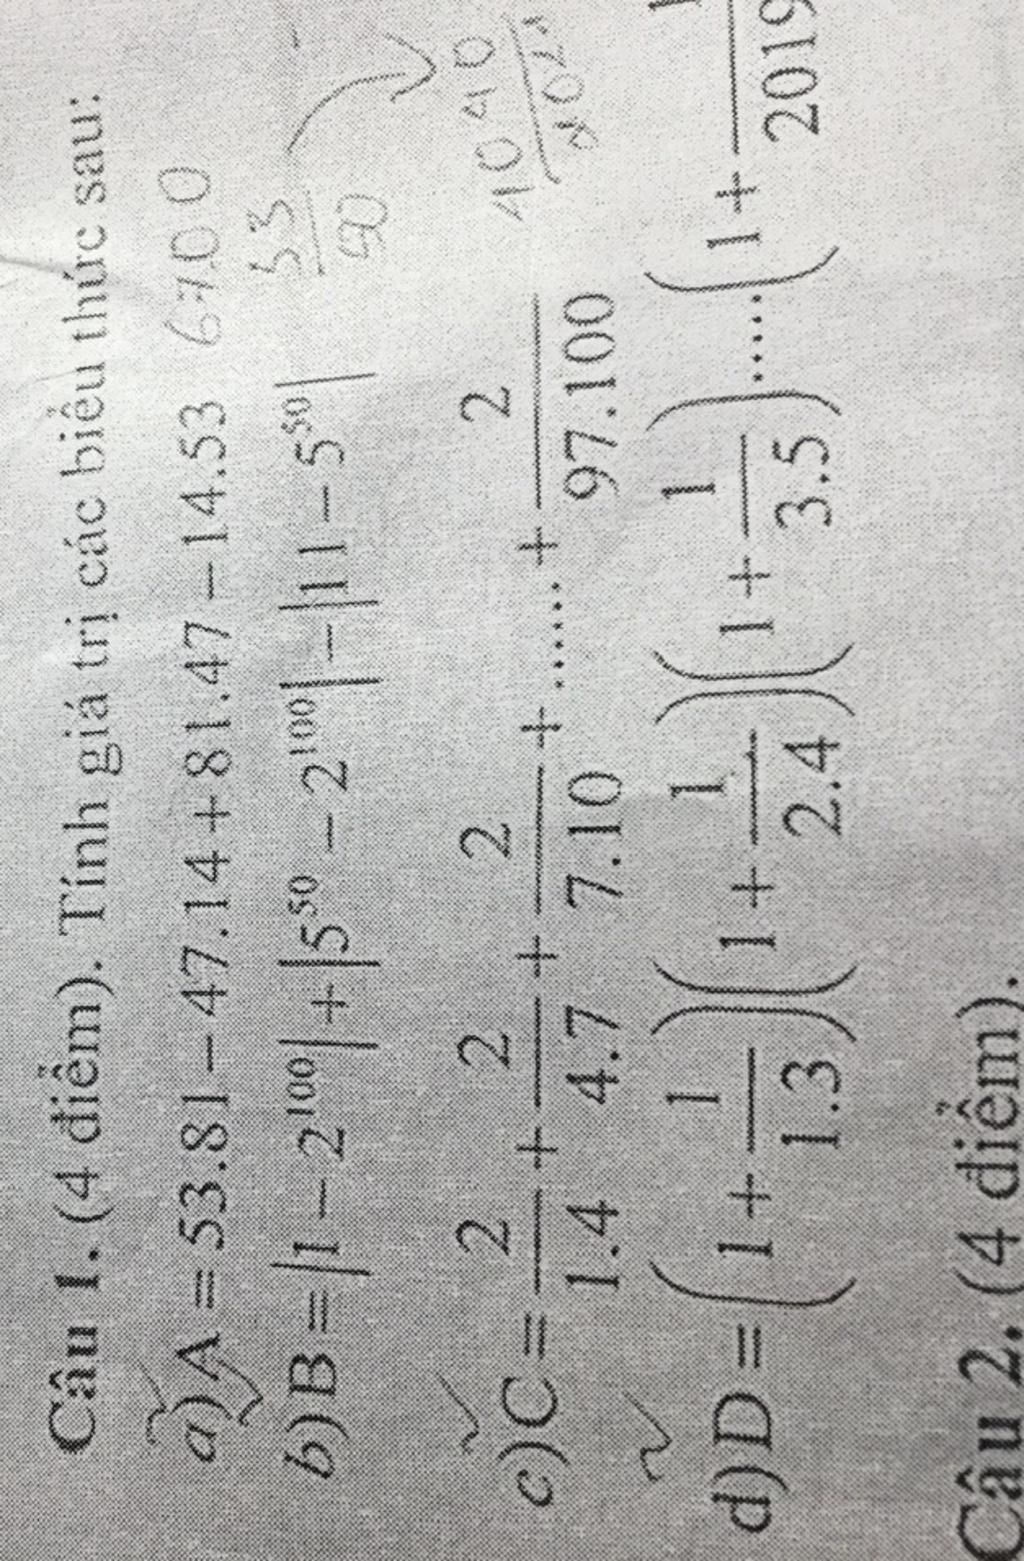 Câu 1. (4 điểm). Tính giá trị các biểu thức sau:
a) A = 53.81 − 47.14 + 81.47 − 14.53 6700
b) B = |1 − 2^100| + |5^50 − 2^100| − |11 − 5^50| 33/50
c) C = 2/1.4 + 2/4.7 + 2/7.10 + ...... + 2/97.100
d) D = (1 + 1/1.3)(1 + 1/2.4)(1 + 1/3.5).....(1 + 1/2019
Câu 2. (4 điểm).